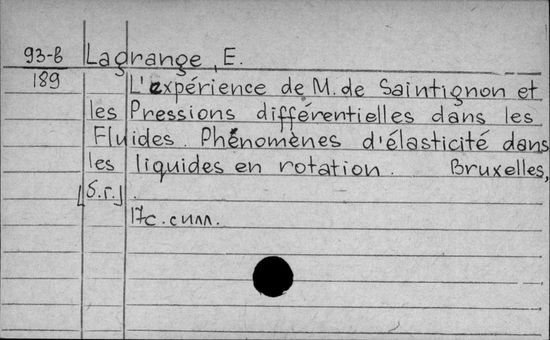 93-б Lagrange, E.
189 L'expérience de M. de Saintignon et
les Pressions différentielles dans les
Fluides. Phénomènes d'élasticité dans
les liquides en rotation. Bruxelles,
[s.г.].
17с. силл.